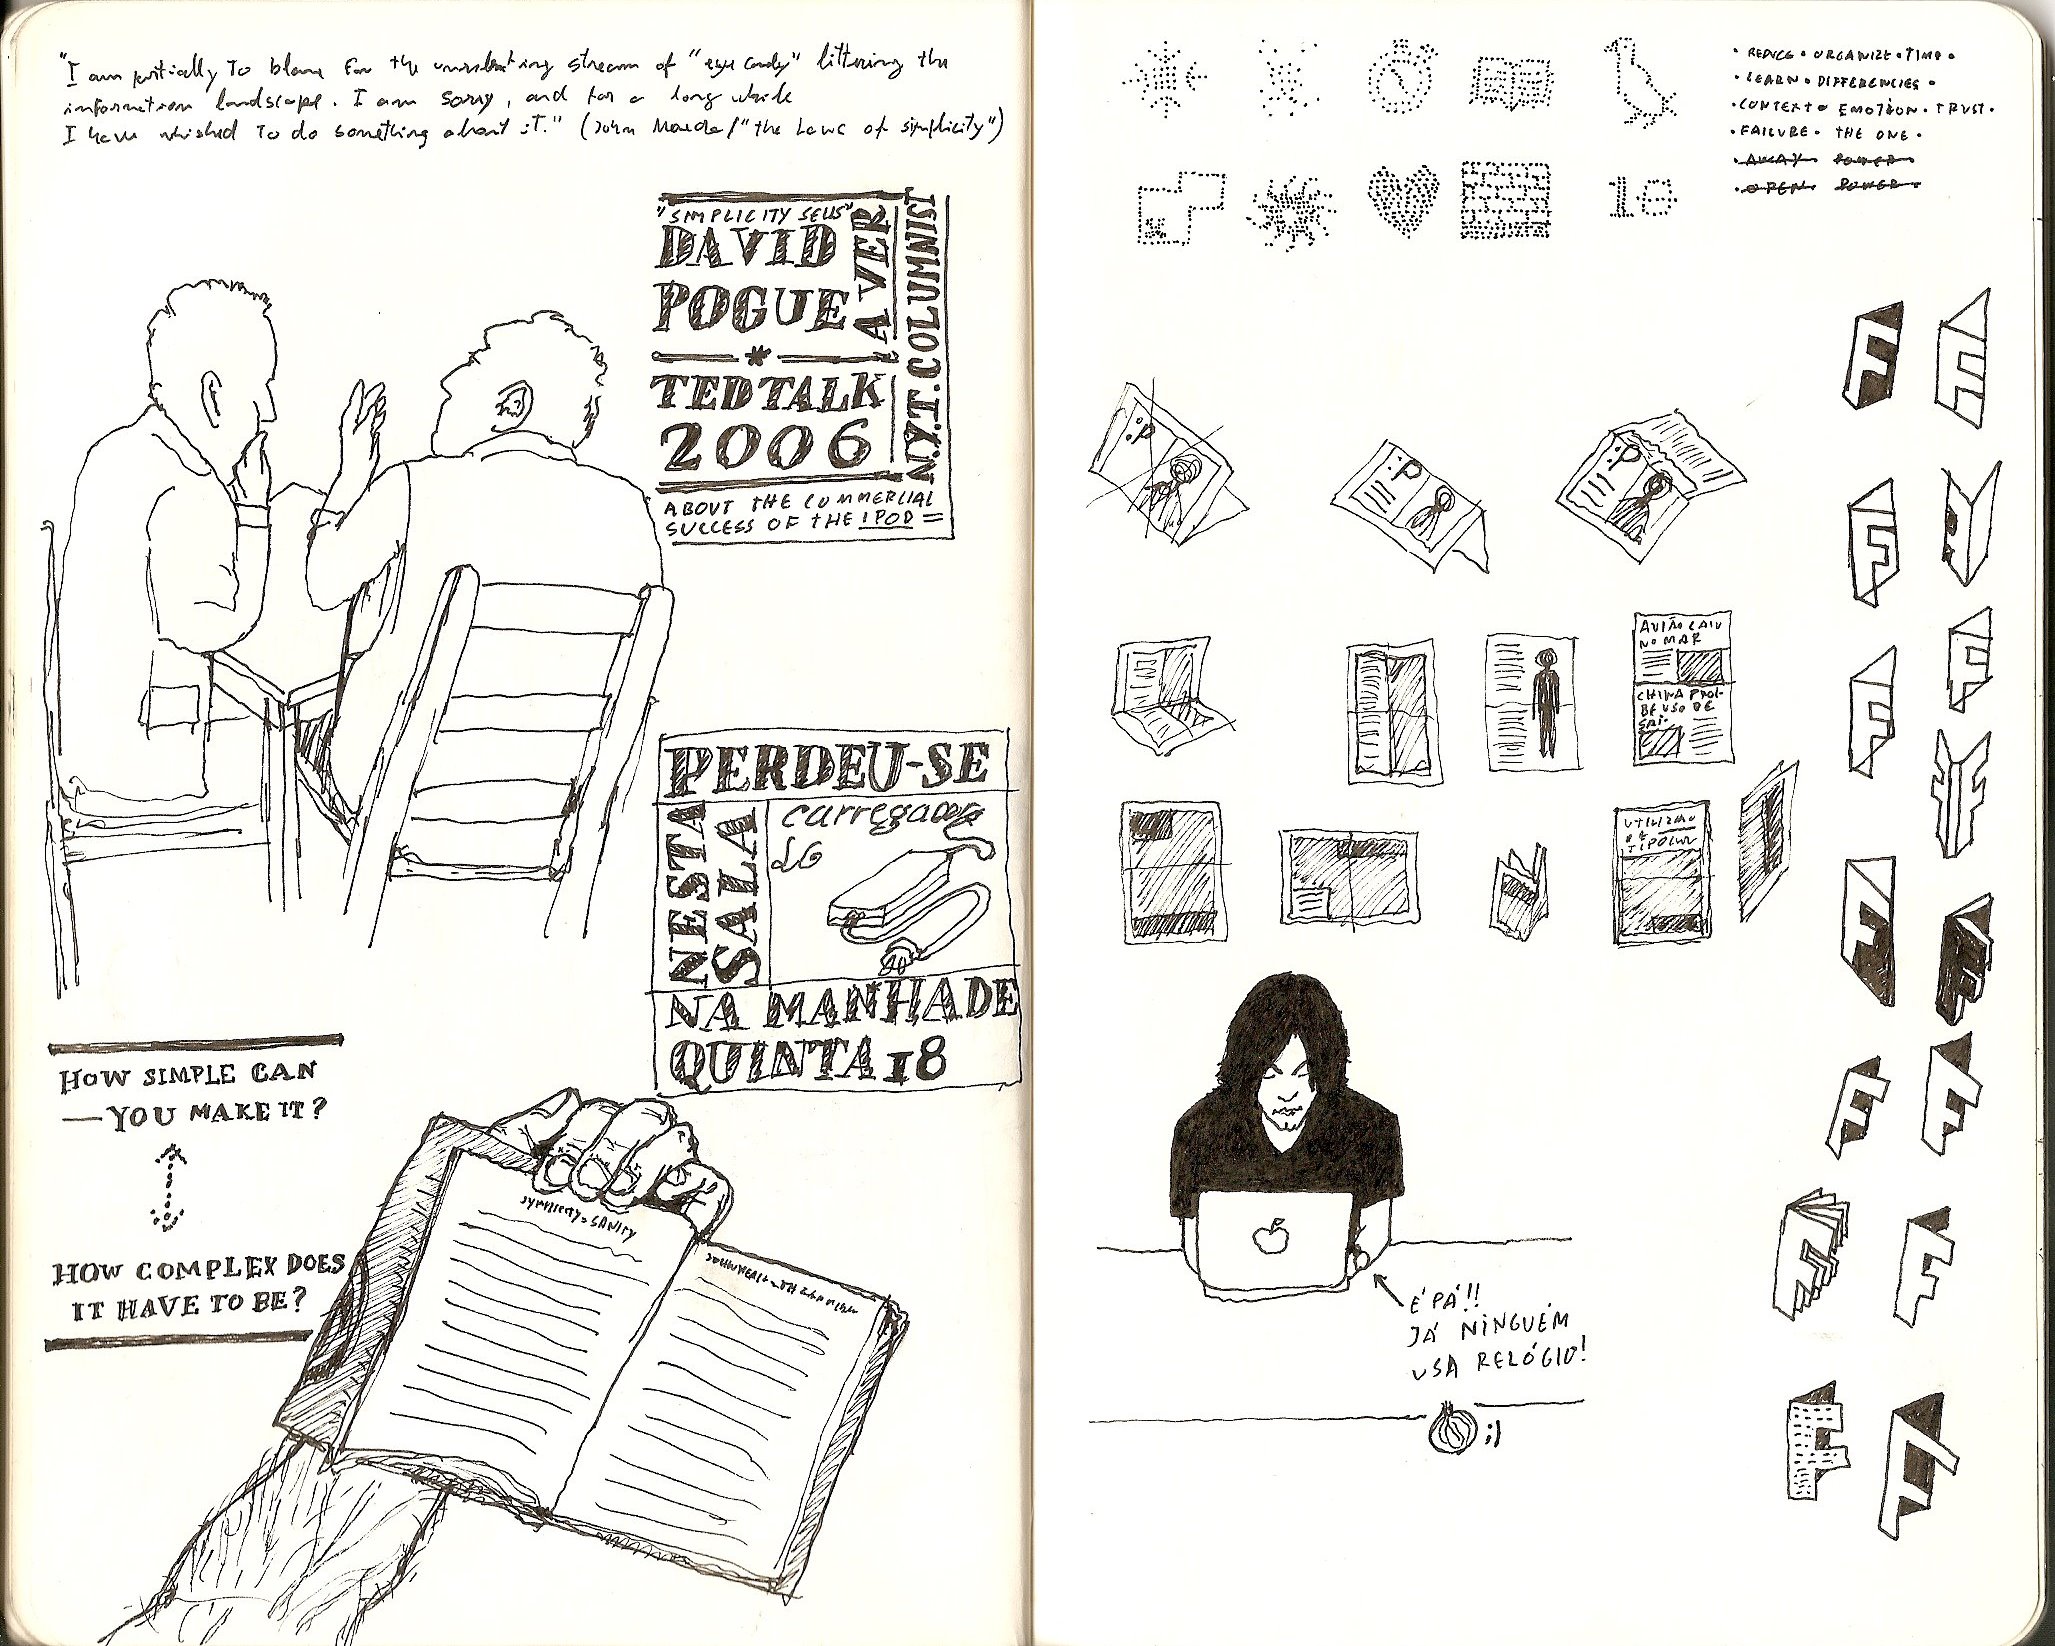 "I am partially to blame for the unrelenting stream of "eye candy" littering the
information landscape. I am sorry, and for a long while
I have whished to do something about it." (John Maeda/"the Laws of simplicity")
"SIMPLICITY SELLS"
DAVID
POGUE
A VER
N.Y.T. COLUMNIST
TEDTALK
2006
ABOUT THE COMMERCIAL
SUCCESS OF THE IPOD =
PERDEU-SE
NESTA
SALA
carregador
LG
NA MANHA DE
QUINTA 18
HOW SIMPLE CAN
—YOU MAKE IT?
HOW COMPLEX DOES
IT HAVE TO BE?
SIMPLICITY = SANITY
• REDUCE • ORGANIZE • TIME •
• LEARN • DIFFERENCIES •
• CONTEXT • EMOTION • TRUST •
• FAILURE • THE ONE •
• AWAY POWER
• OPEN POWER •
10
:P
:P
:P
AVIÃO CAIU
NO MAR
CHINA PROÍ-
BE USO DE
F
F
F
F
F
F
F
F
F
F
F
F
F
F
É PÁ!!
JÁ NINGUÉM
USA RELÓGIO!
;)